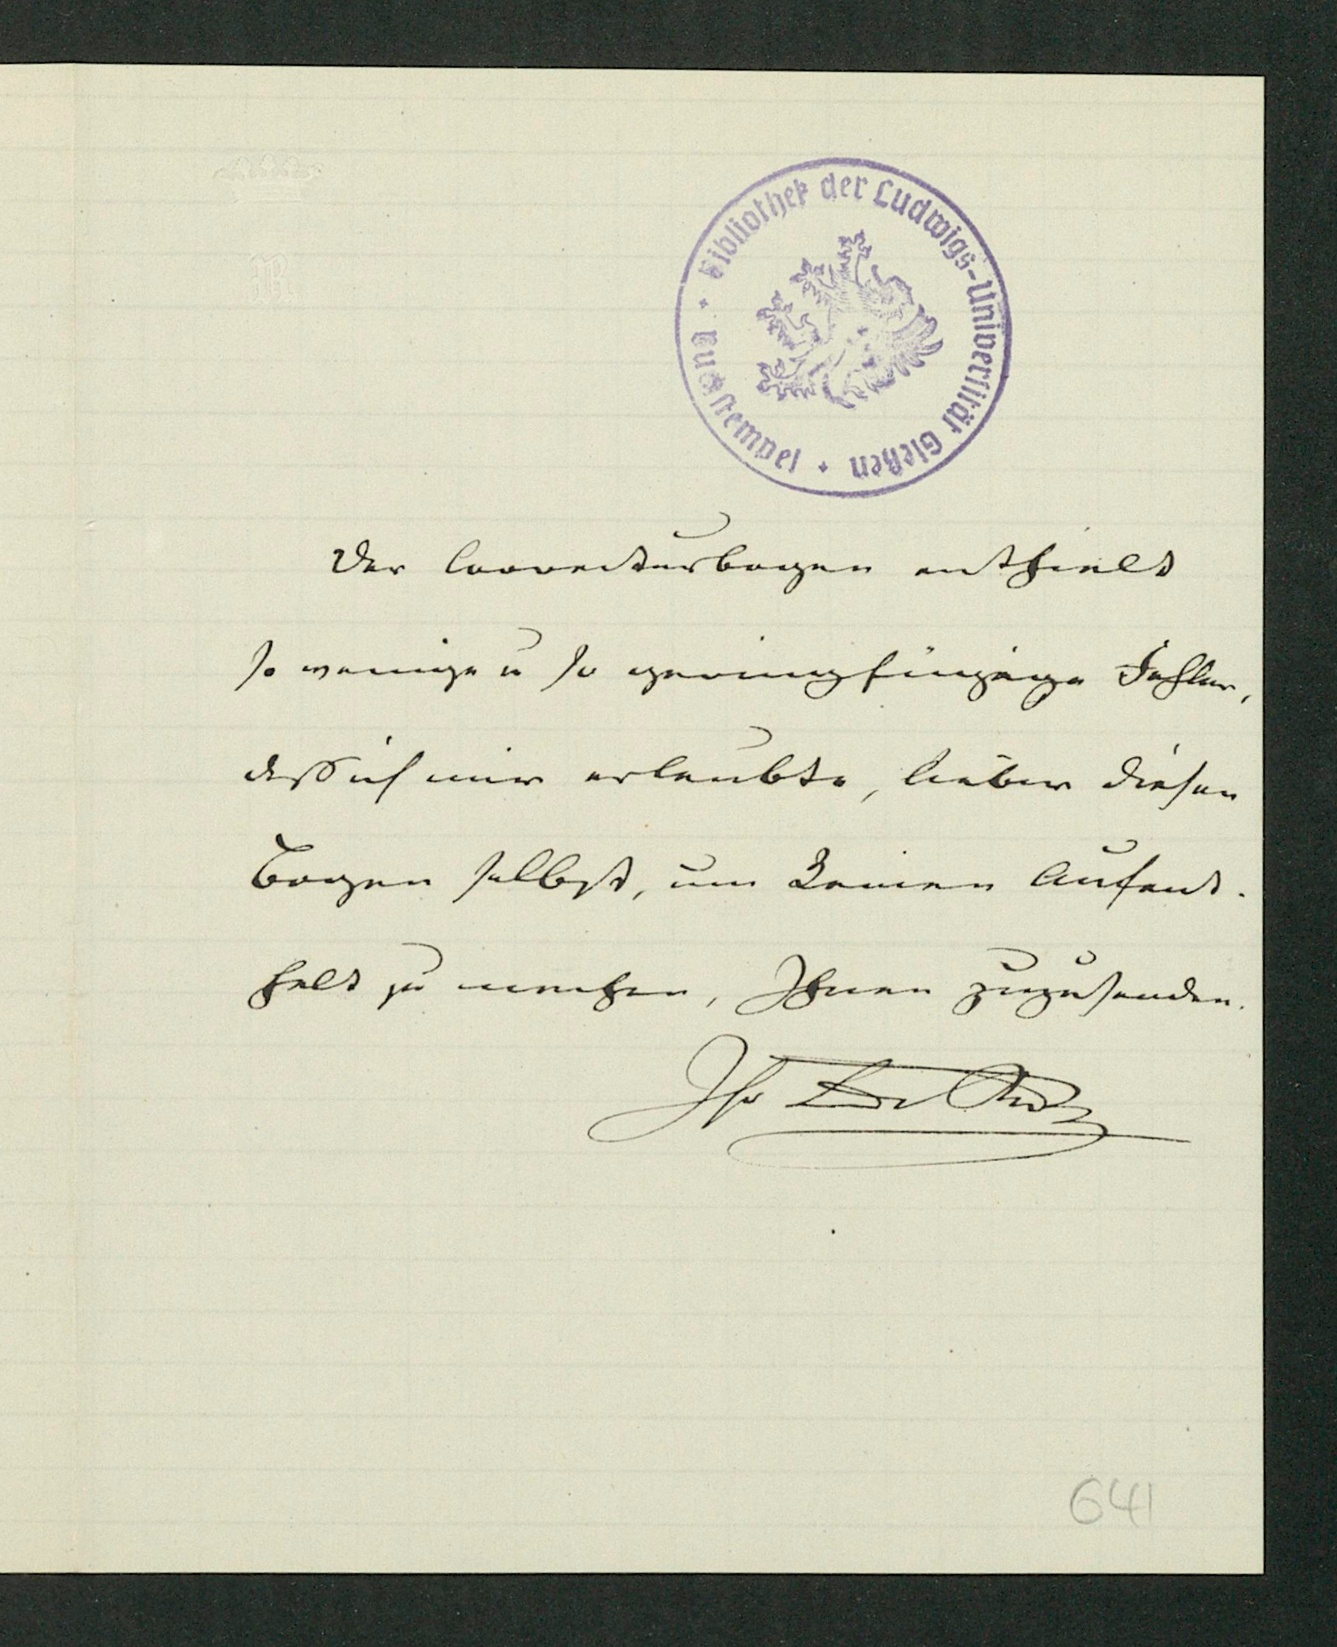 Bibliothek der Ludwigs-Universität Gießen
Buchstempel
Der Correcturbogen enthielt
so wenige u so geringfügige Fehler,
daß ich mir erlaubte, lieber diesen
Bogen selbst, um keinen Aufent-
halt zu machen, Ihnen zuzusenden.
Ihr
641